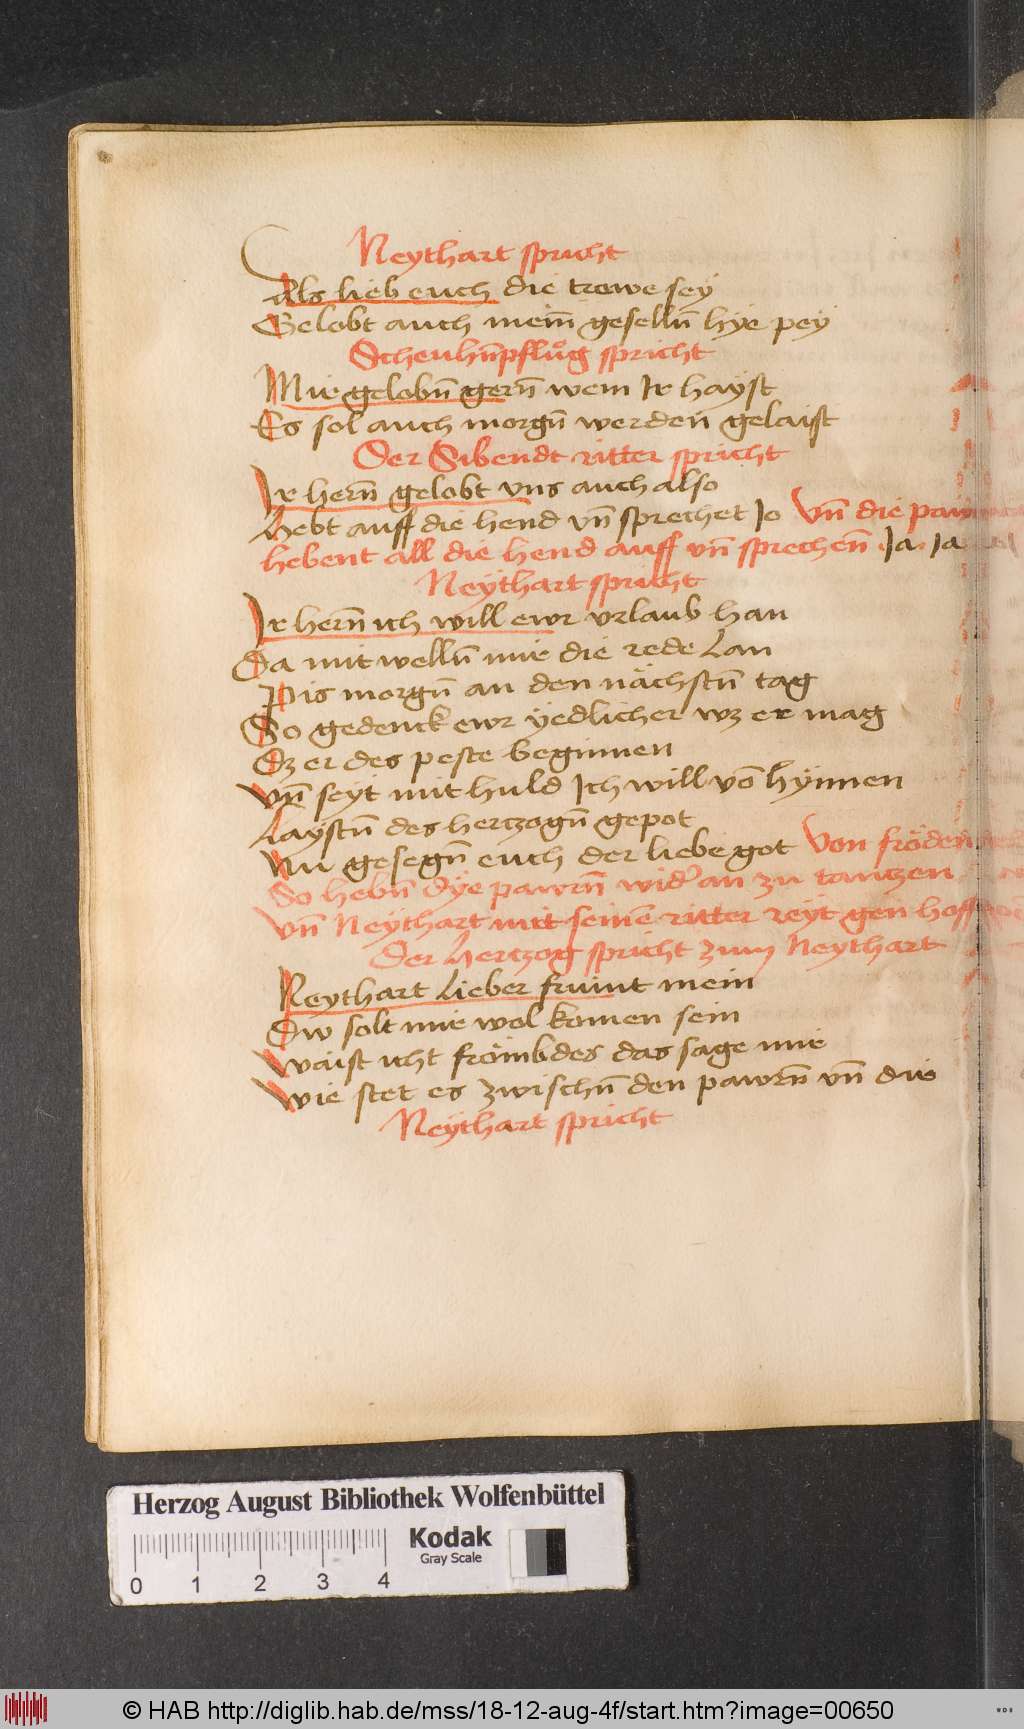 Neythart spricht
Als lieb euch die trewe seÿ
Gelobt auch meim̄ geselln̄ hÿe peÿ
Scheuhn̄pflůg spricht
Mir gelobn̄ gern̄ wem Ir haÿst
Es sol auch morgn̄ werden gelaist
Der Sibendt ritter spricht
Ir hern̄ gelobt vns auch also
Hebt auff die hend vn̄ sprechet Jo Vn̄ die
hebent all die hend auff vn̄ sprechen̄ Ja. Ja
Neÿthart spricht
Ir hern̄ ich will ewr vrlaub han
Da mit welln̄ mir die rede Lan
Pis morgn̄ an den nächstn̄ tag
So gedenck ewr ÿedlicher wz er mag
Dz er des peste beginnen
Vn̄ seyt mit huld Ich will vō hÿnnen
Laÿstn̄ des hertzogn̄ gepot
Nu gesegn̄ euch der liebe got Von fröden
So hebn̄ dÿe pawrn̄ wid' an zu tantzen
Vn̄ Neÿthart mit seinē ritter reÿt gen hoff
Der Hertzog spricht zum Neythart
Neythart Lieber frŭint mein
Dw solt mir wol komen sein
Waist icht frömbdes das sage mir
Wie stet es zwischn̄ den pawrn̄ vn̄ dir
Neÿthart spricht
Herzog August Bibliothek Wolfenbüttel
Kodak
Gray Scale
0 1 2 3 4
© HAB http://diglib.hab.de/mss/18-12-aug-4f/start.htm?image=00650